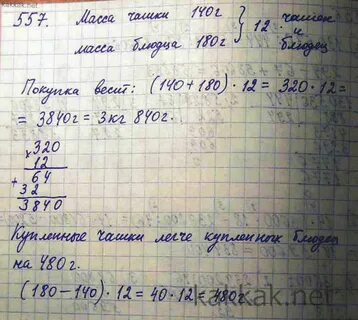 557. Масса чашки 140г } 12 чашек
масса блюдца 180г и блюдец
Покупка весит: (140+180)·12 = 320·12=
= 3840г = 3кг 840г.
×320
12
+ 64
32
3840
Купленные чашки легче купленных блюдец
на 480г.
(180-140)·12 = 40·12 = 480г.
kakkak.net